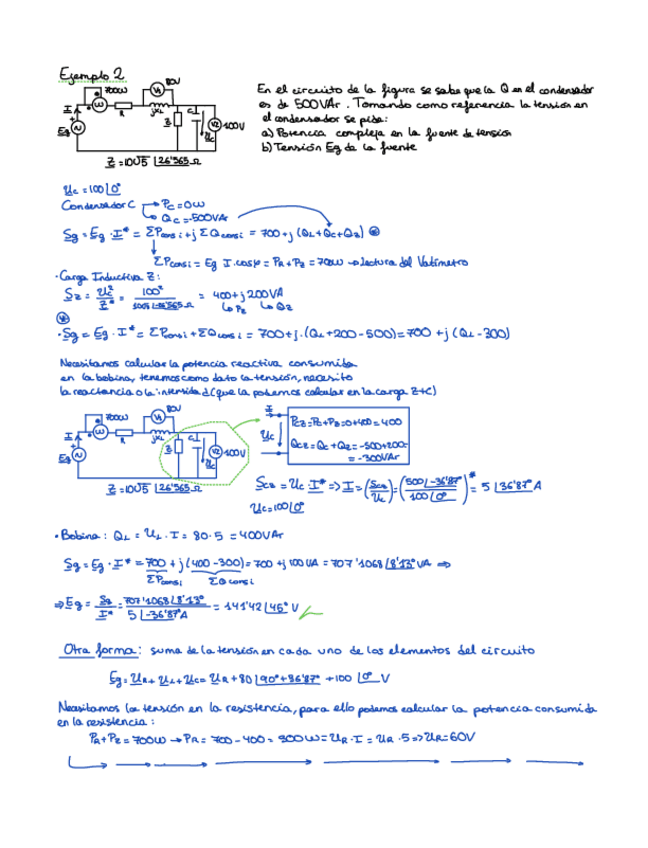 Ejemplo 2
80V
700W
V1
W
I
R
jXL
Z
C
V2
100V
Uc
Eg
Z = 10√5 |26'565 Ω
En el circuito de la figura se sabe que la Q en el condensador
es de 500VAr. Tomando como referencia la tensión en
el condensador se pide:
a) Potencia compleja en la fuente de tensión
b) Tensión Eg de la fuente
Uc = 100|0°
Condensador C → Pc = 0W
Qc = -500VAr
Sg = Eg · I* = ΣPconsi + j ΣQconsi = 700 + j (QL + Qc + Qz) *
ΣPconsi = Eg I · cosφ = PR + Pz = 700W → lectura del Vatímetro
· Carga Inductiva Z:
Sz = Uc²/Z* = 100²/10√5 |-26'565 Ω = 400 + j 200VA
↳ Pz ↳ Qz
*
· Sg = Eg · I* = ΣPconsi + ΣQconsi = 700 + j · (QL + 200 - 500) = 700 + j (QL - 300)
Necesitamos calcular la potencia reactiva consumida
en la bobina, tenemos como dato la tensión, necesito
la reactancia o la intensidad (que la podemos calcular en la carga Z+C)
80V
700W
V1
W
I
R
jXL
Z
C
V2
100V
Uc
Eg
Z = 10√5 |26'565 Ω
I
Uc
Pcz = Pc + Pz = 0 + 400 = 400
Qcz = Qc + Qz = -500 + 200 =
= -300VAr
Scz = Uc · I* => I = (Scz/Uc)* = (500|-36'87°/100|0°)* = 5 |36'87° A
Uc = 100|0°
· Bobina: QL = UL · I = 80 · 5 = 400VAr
Sg = Eg · I* = 700 + j (400 - 300) = 700 + j 100 VA = 707'1068 |8'13° VA =>
ΣPconsi ΣQconsi
=> Eg = Sg/I* = 707'1068 |8'13°/5 |-36'87° A = 141'42 |45° V
Otra forma: suma de la tensión en cada uno de los elementos del circuito
Eg = UR + UL + Uc = UR + 80 |90° + 36'87° + 100 |0° V
Necesitamos la tensión en la resistencia, para ello podemos calcular la potencia consumida
en la resistencia:
PR + Pz = 700W → PR = 700 - 400 = 300W = UR · I = UR · 5 => UR = 60V